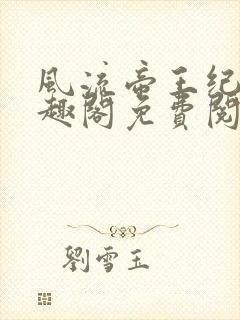 風流帝王纪
趣閣免費閱
劉雪玉